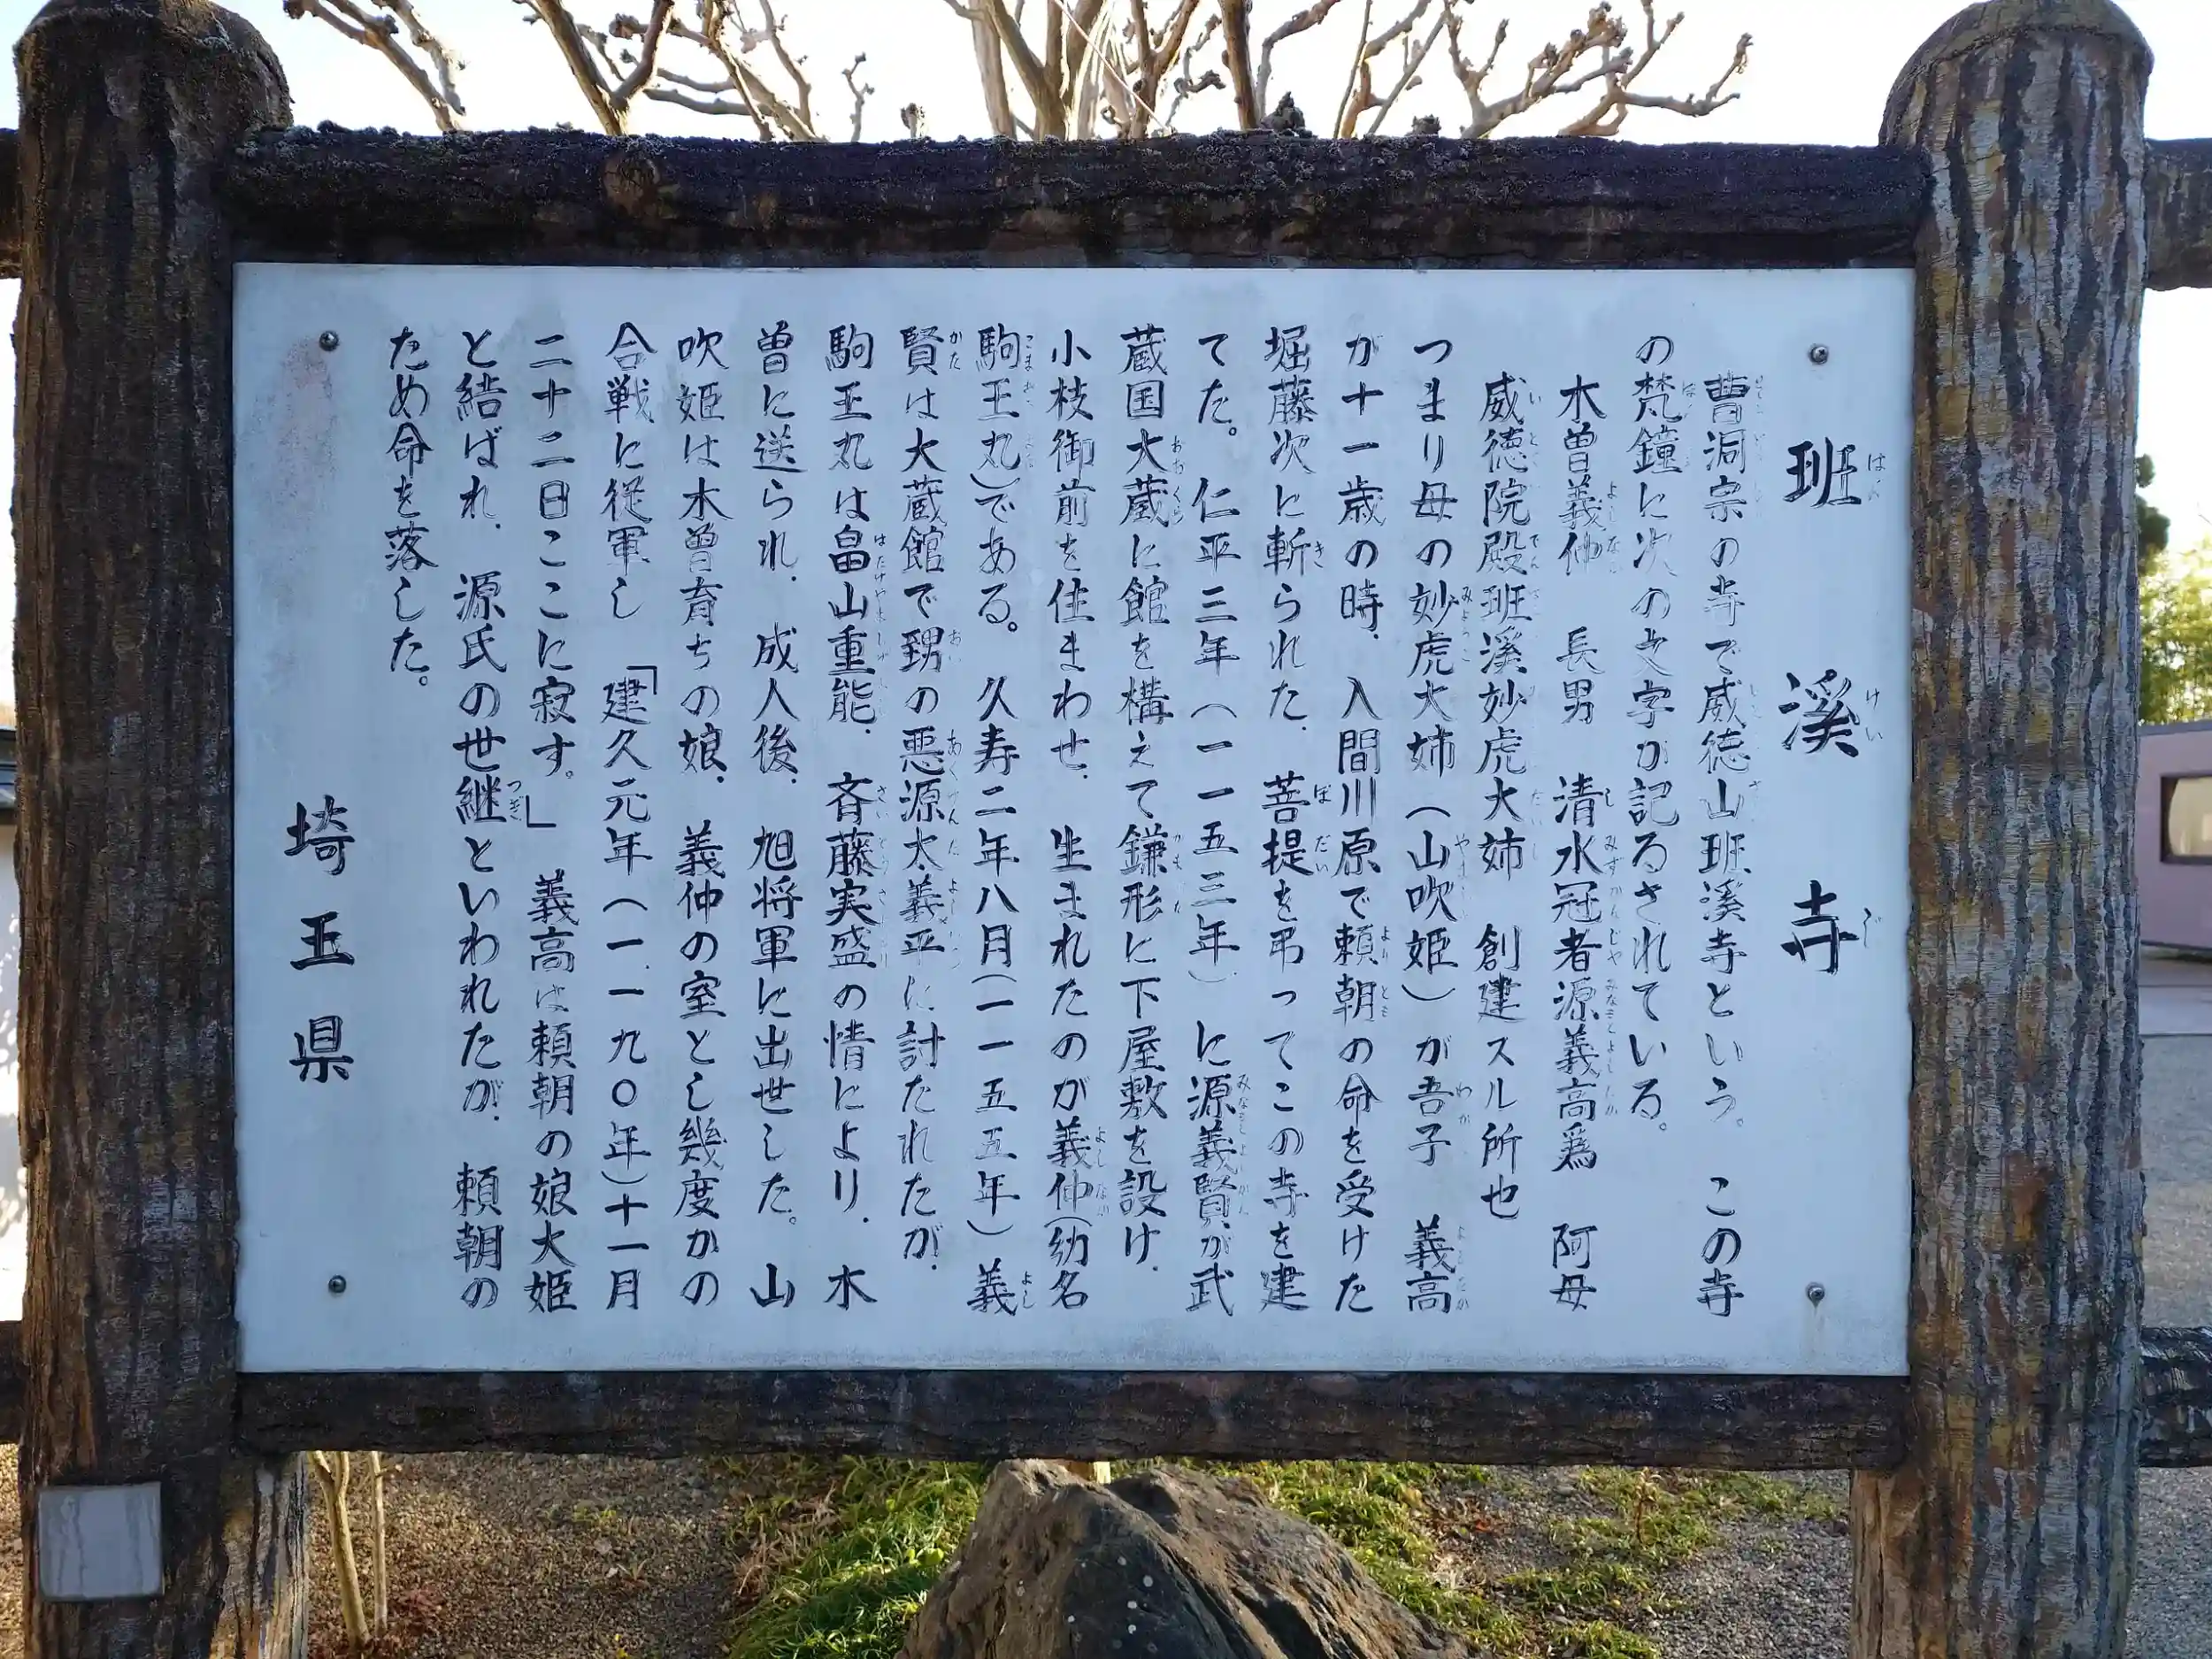 班溪寺
曹洞宗の寺で威徳山班溪寺という。この寺
の梵鐘に次の文字が記るされている。
木曽義仲 長男 清水冠者源義高為 阿母
威徳院殿班溪妙虎大姉 創建スル所也
つまり母の妙虎大姉(山吹姫)が吾子 義高
が十一歳の時、入間川原で頼朝の命を受けた
堀藤次に斬られた、菩提を弔ってこの寺を建
てた。仁平三年(一一五三年)に源義賢が武
蔵国大蔵に館を構えて鎌形に下屋敷を設け、
小枝御前を住まわせ、生まれたのが義仲(幼名
駒王丸)である。久寿二年八月(一一五五年)義
賢は大蔵館で甥の悪源太義平に討たれたが、
駒王丸は畠山重能、斉藤実盛の情により、木
曽に送られ、成人後、旭将軍に出世した。山
吹姫は木曽育ちの娘、義仲の室とし幾度かの
合戦に従軍し「建久元年(一一九〇年)十一月
二十二日ここに寂す。」義高は頼朝の娘大姫
と結ばれ、源氏の世継といわれたが、頼朝の
ため命を落した。
埼玉県